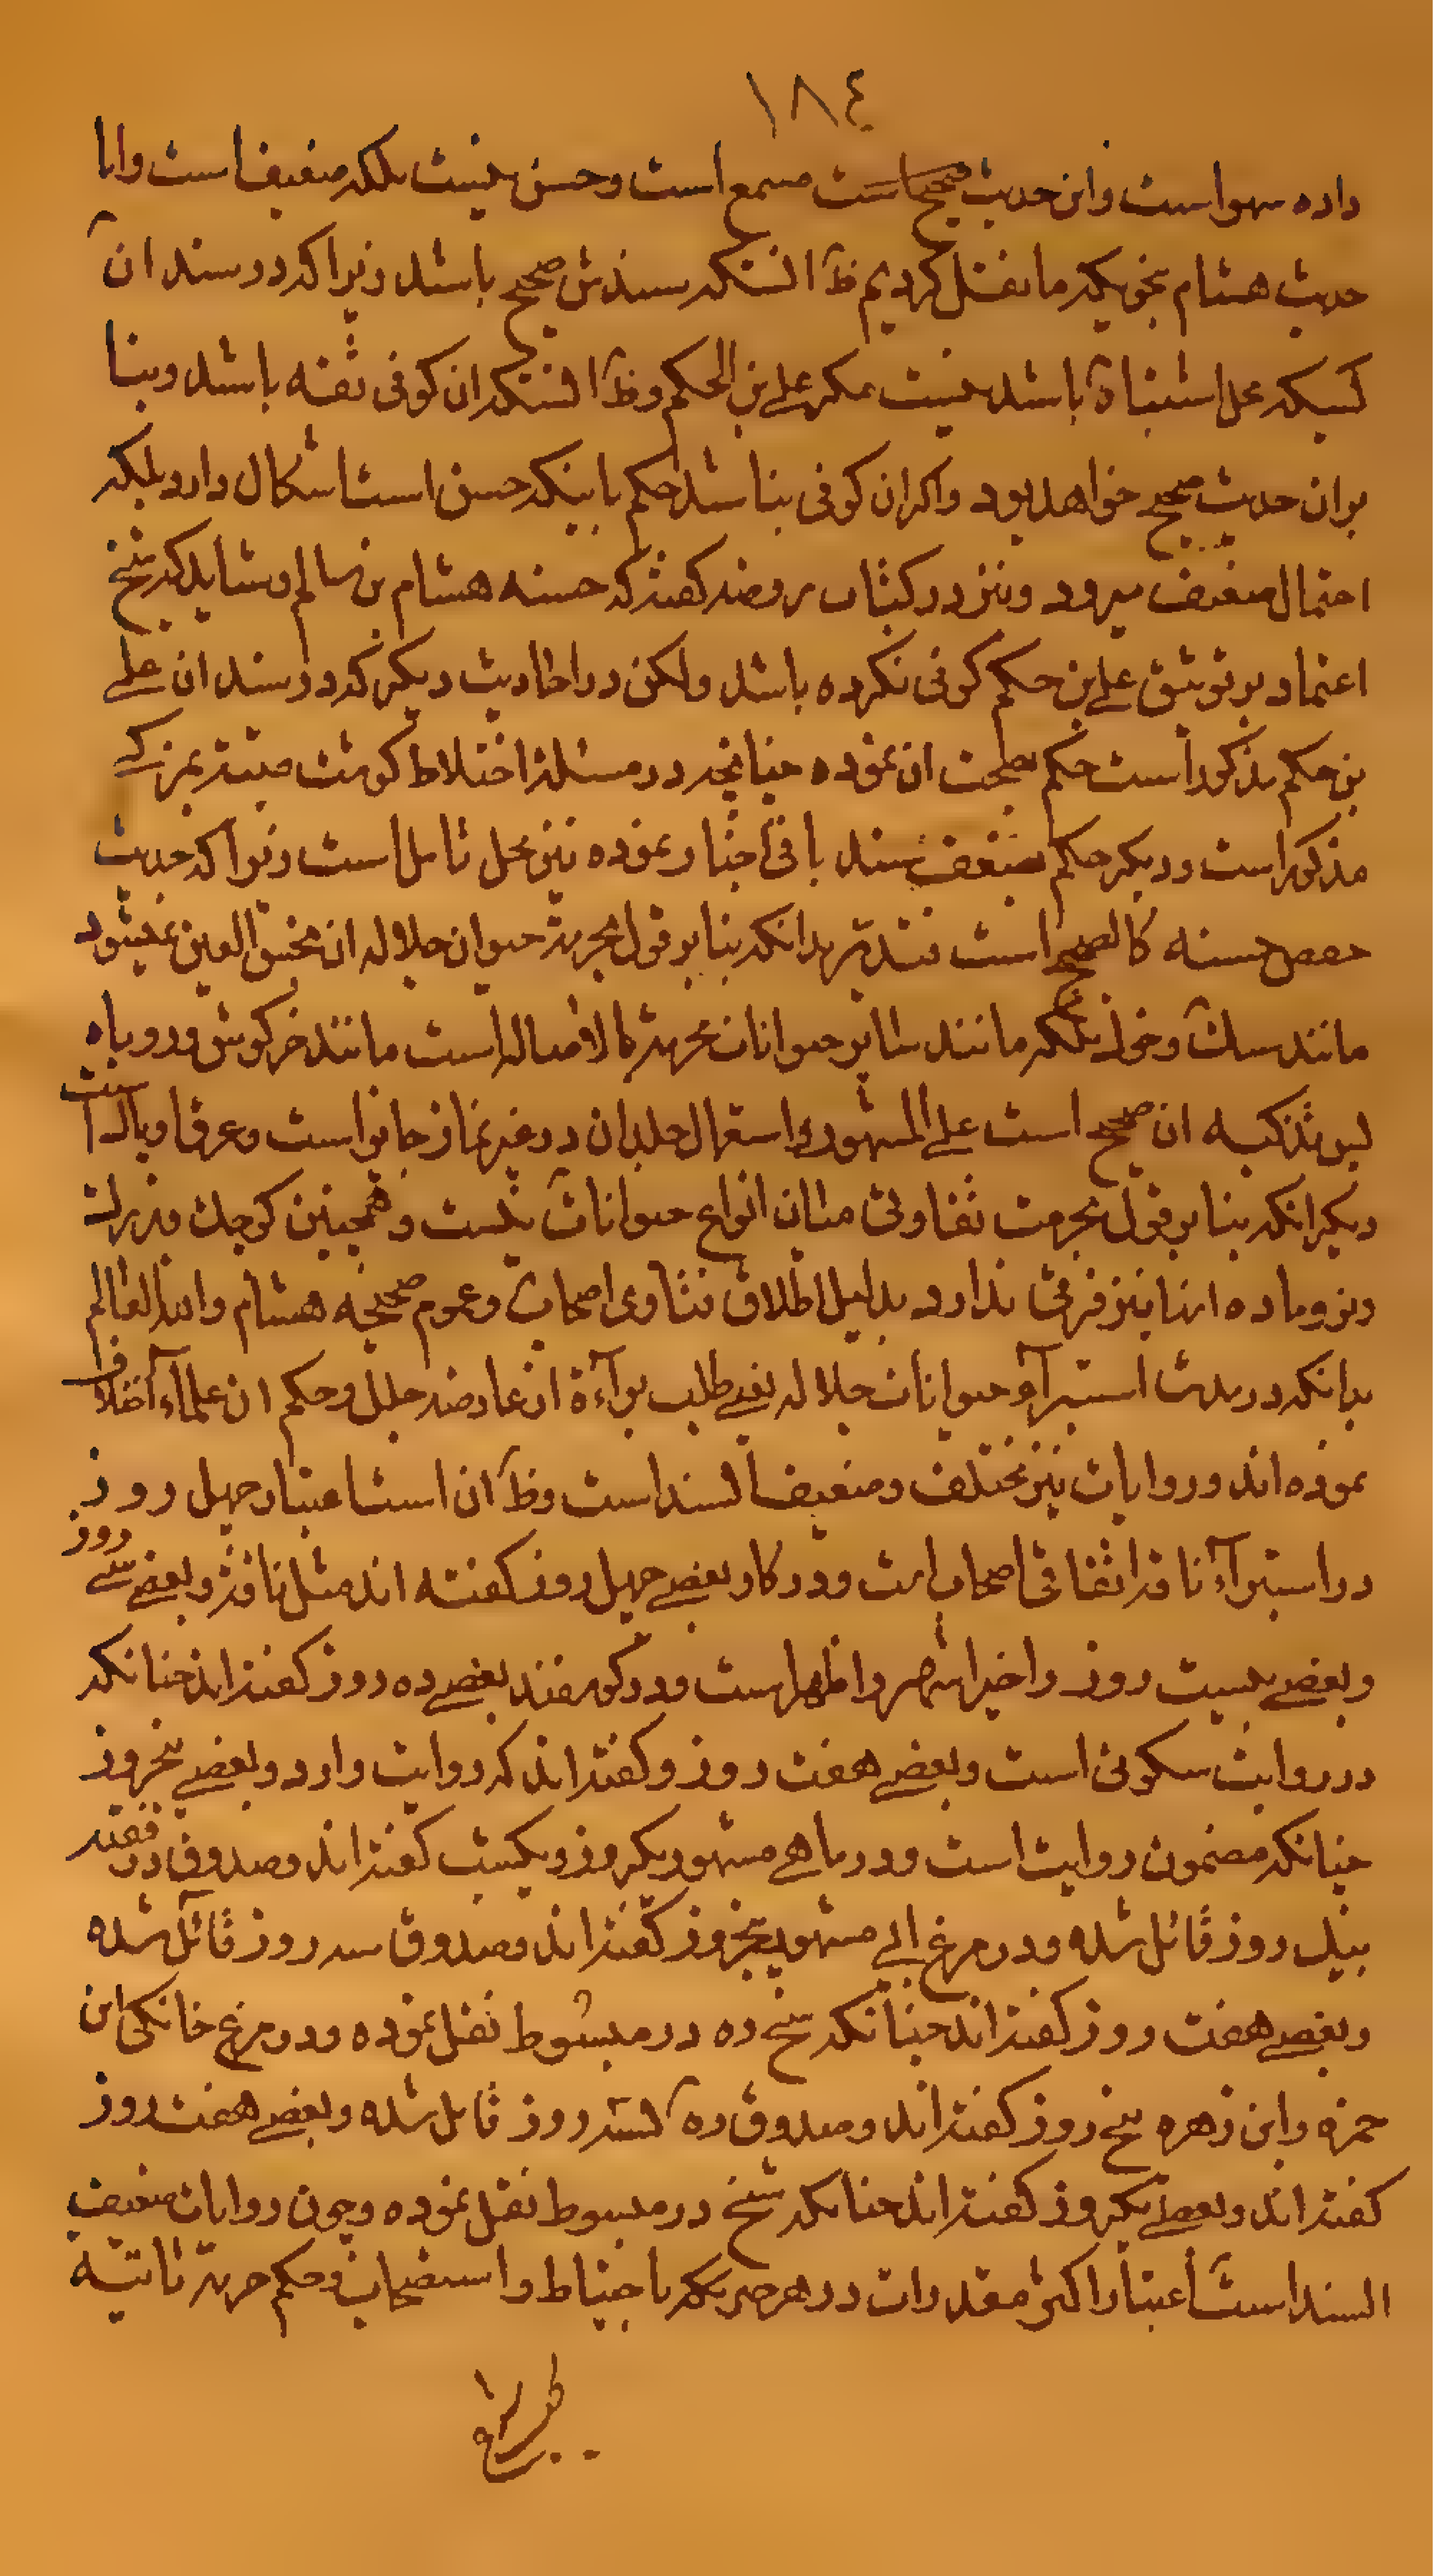 ١٨٤
داده سهو است و این حدیث صحیح است مسمع است و حسن نیست بلکه ضعیف است و اما
حدیث هشام بنحویکه ما نقل کردیم ظ آنستکه سندش صحیح باشد زیرا که در سند آن
کسیکه محل اشتباه باشد نیست مکر علی بن الحکم و ظ آنستکه ان کوفی ثقه باشد و بنا
بران حدیث صحیح خواهد بود و اکر ان کوفی نباشد حکم باینکه حسن است اشکال دارد بلکه
احتمال ضعیف میرود و نیز در کتاب روضه کفته که حسنه هشام بن سالم و شاید که شیخ
اعتماد بر توثیق علی بن حکم کوفی نکرده باشد ولکن در احادیث دیکر که در سند ان علی
بن حکم مذکور است حکم بصحت ان نموده چنانچه در مسئله اختلاط کوشت میته بمزکی
مذکور است و دیکر حکم بضعف سند باقی اخبار نموده نیز محل تامل است زیرا که حدیث
حفص حسنه کالصحیح است تتمه بدانکه بنا بر قول بحرمة حیوان جلاله ان نجس العین نمیشود
مانند سک و خوک بلکه مانند سایر حیوانات محرمه بالاصاله است مانند خرکوش و روباه
پس تذکیه ان صحیح است علی المشهور و استعمال جلد ان در غیر نماز جایز است و عرق او پاک است
دیکر انکه بنا بر قول بحرمت تفاوتی میان انواع حیوانات نیست و همچنین کوچک و بزرک
و نر و ماده اینها نیز فرقی ندارد بدلیل اطلاق فتاوی اصحاب و عموم صحیحه هشام والله العالم
بدانکه در مدت استبرآء حیوانات جلاله یعنی طلب برآءة از عارضه جلل و حکم ان علمآء اختلاف
نموده اند و روایات نیز مختلف و ضعیف السند است و ظ ان است اعتبار چهل روز
در استبرآء ناقه اتفاقی اصحاب است و در کاو بعضی چهل روز کفته اند مثل ناقه و بعضی سی روز
و بعضی بیست روز و اخیر اشهر و اظهر است و در کوسفند بعضی ده روز کفته اند چنانکه
در روایت سکونی است و بعضی هفت روز و کفته اند که روایت وارد و بعضی پنجروز
چنانکه مضمون روایت است و در ماهی مشهور یکروز و یکشب کفته اند و صدوق در مقنع
بیک روز قائل شده و در مرغ ابی مشهور پنجروز کفته اند و صدوق سه روز قائل شده
و بعضی هفت روز کفته اند چنانکه شیخ ره در مبسوط نقل نموده و در مرغ خانکی ابن
حمزه و ابن زهره پنج روز کفته اند و صدوق ره بسه روز قائل شده و بعضی هفت روز
کفته اند و بعضی یکروز کفته اند چنانکه شیخ در مبسوط نقل نموده و چون روایات ضعیف
السند است اعتبار اکثر مقدرات در هر صریکه باحتیاط و استصحاب و حکم حرمة ثابتیه